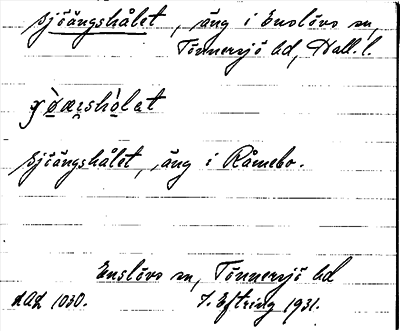 Sjöängshålet, äng i Enslövs sn,
Tönnersjö hd, Hall. l.
Sjöängshålet, äng i Råmebo.
Enslövs sn, Tönnersjö hd
1030. Eftring 1931.